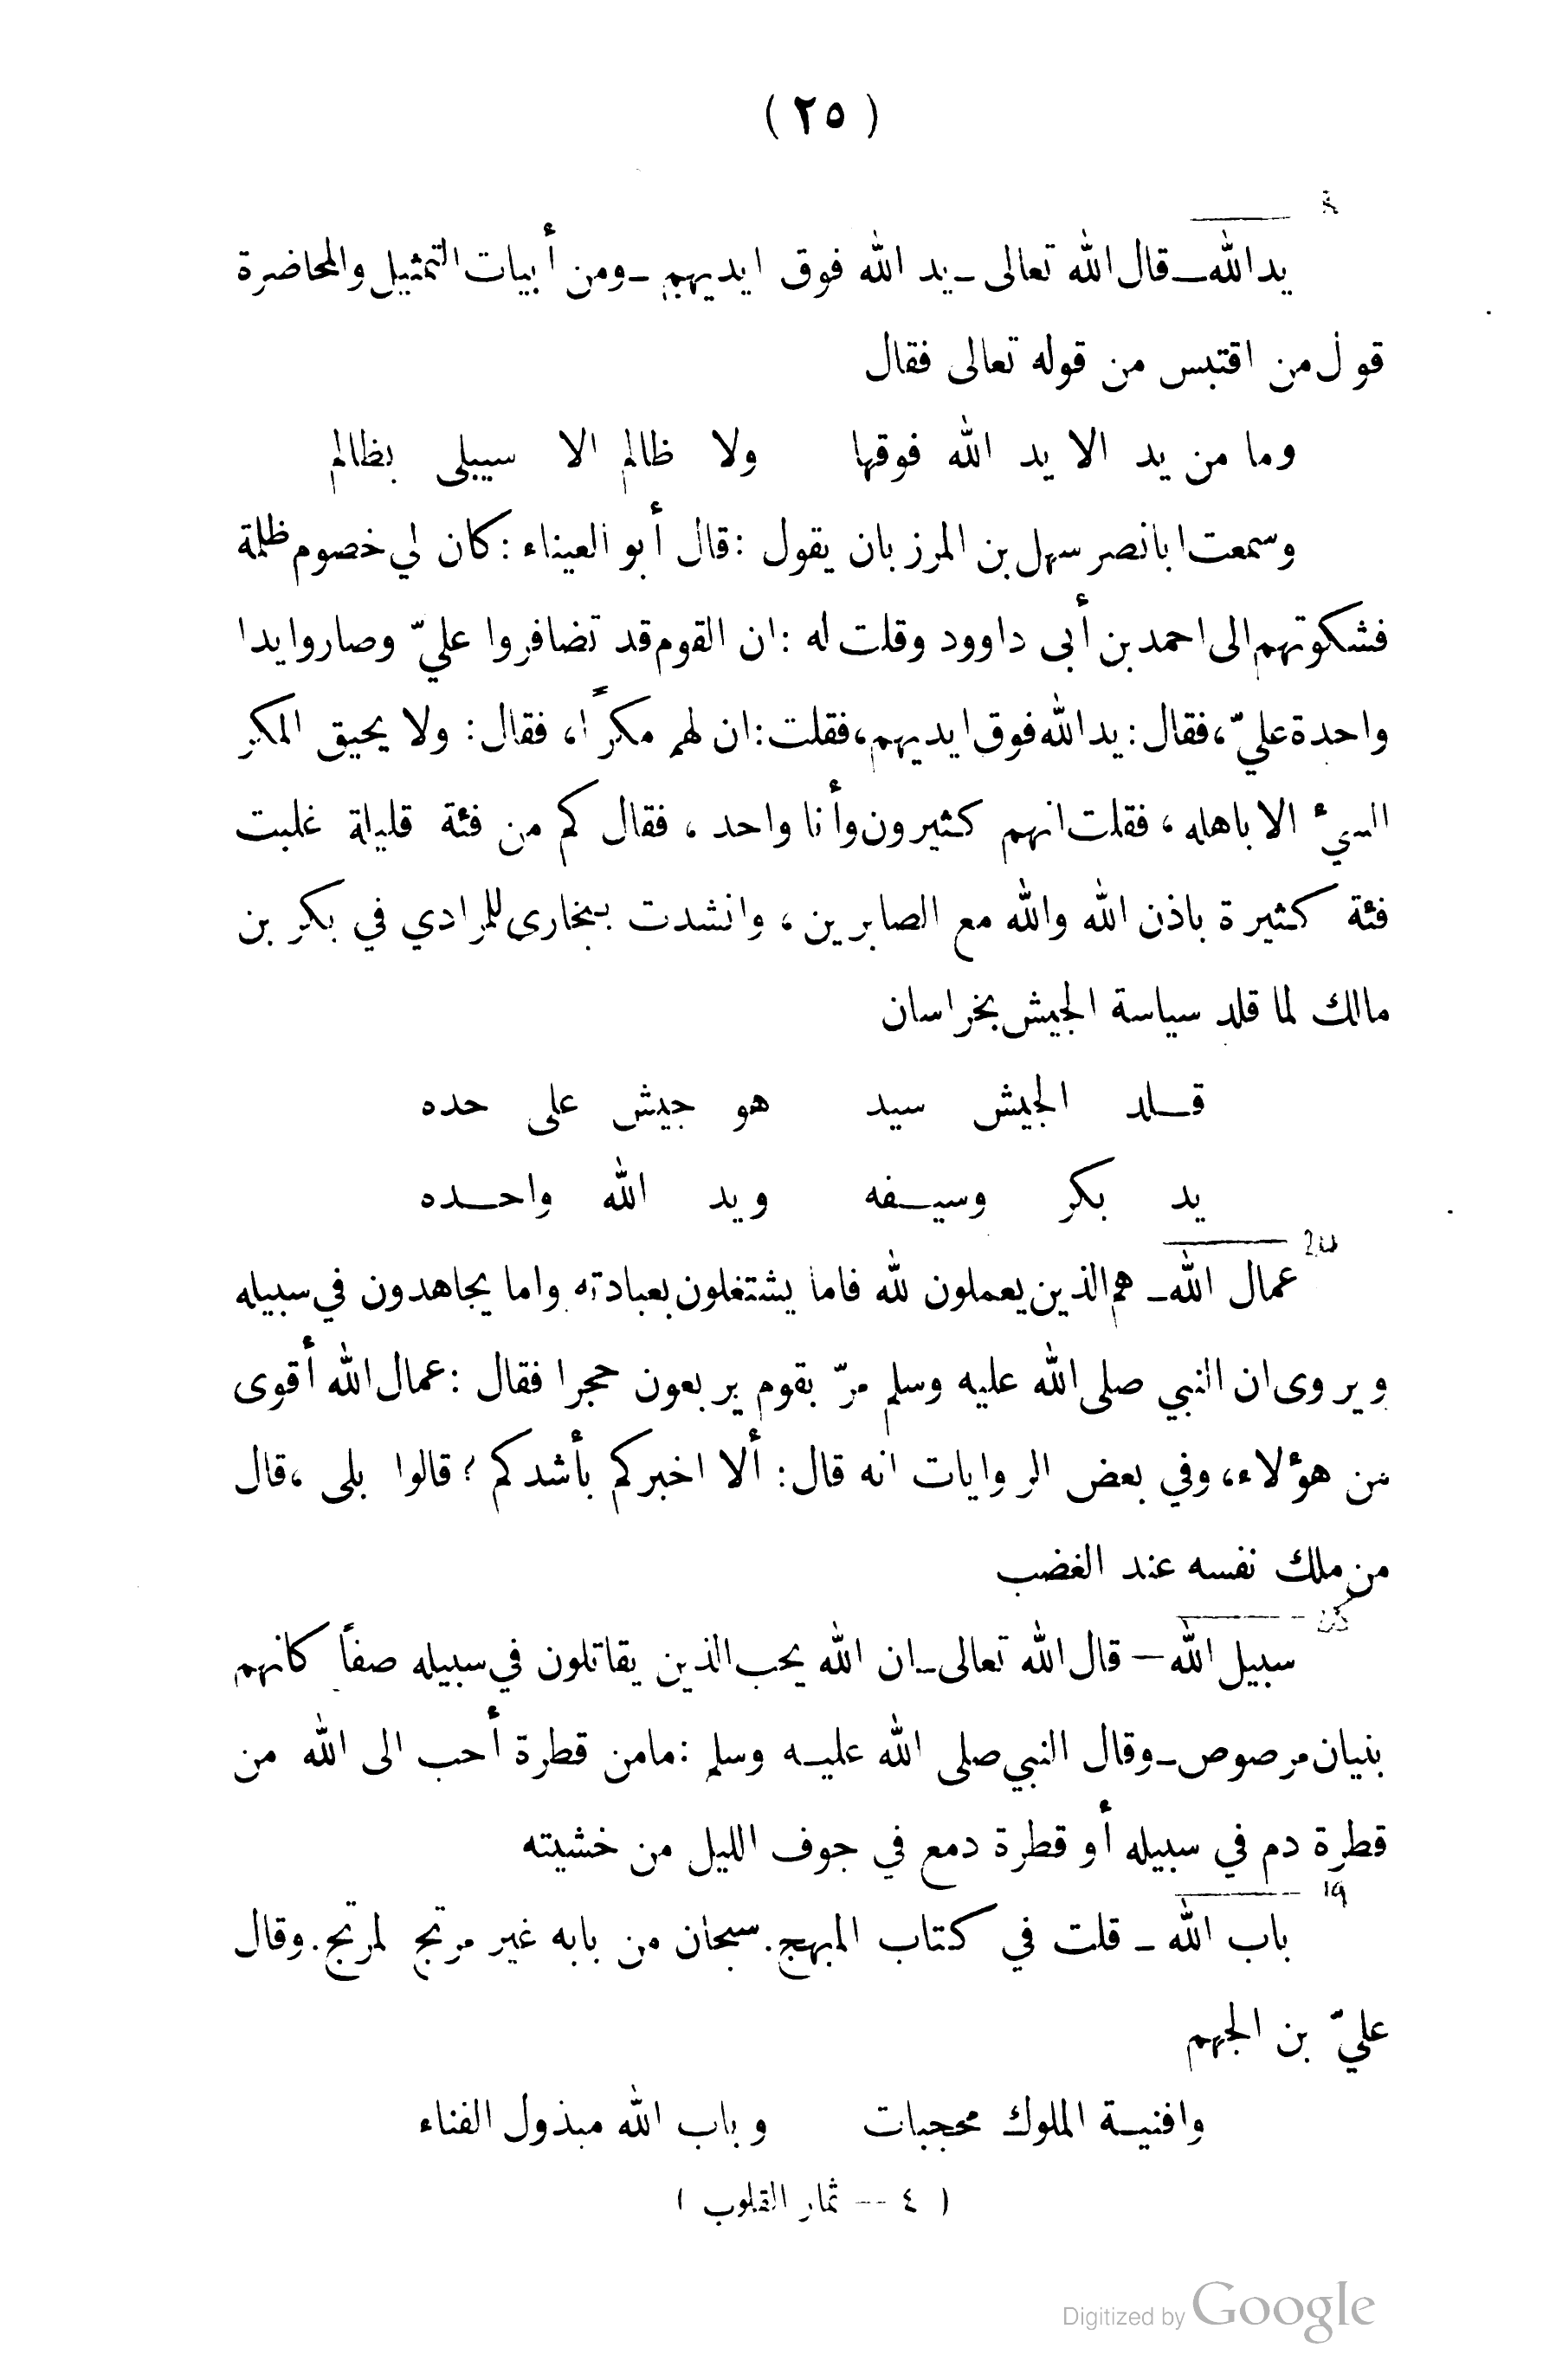 ( ٢٥ )
يد الله ـ قال الله تعالى ـ يد الله فوق ايديهم ـ ومن أبيات التمثيل والمحاضرة
قول من اقتبس من قوله تعالى فقال
وما من يد الا يد الله فوقها ولا ظالم الا سيبلى بظالم
وسمعت ابا نصر سهل بن المرزبان يقول : قال أبو العيناء : كان لي خصوم ظلمة
فشكوتهم الى احمد بن أبى داوود وقلت له : ان القوم قد تضافروا عليّ وصاروا يدا
واحدة عليّ، فقال : يد الله فوق ايديهم، فقلت : ان لهم مكرًا، فقال : ولا يحيق المكر
السيء الا باهله، فقلت انهم كثيرون وأنا واحد، فقال كم من فئة قليلة غلبت
فئة كثيرة باذن الله والله مع الصابرين، وانشدت ببخارى للمرادي في بكر بن
مالك لما قلد سياسة الجيش بخراسان
قلد الجيش سيد هو جيش على حده
يد بكر وسيفه ويد الله واحده
20
عمال الله ـ هم الذين يعملون لله فاما يشتغلون بعبادته واما يجاهدون في سبيله
ويروى ان النبي صلى الله عليه وسلم مرّ بقوم يربعون حجرا فقال : عمال الله أقوى
من هؤلاء، وفي بعض الروايات انه قال : ألا اخبركم بأشدكم ؟ قالوا بلى، قال
من ملك نفسه عند الغضب
سبيل الله — قال الله تعالى ـ ان الله يحب الذين يقاتلون في سبيله صفاً كانهم
بنيان مرصوص ـ وقال النبي صلى الله عليه وسلم : مامن قطرة أحب الى الله من
قطرة دم في سبيله أو قطرة دمع في جوف الليل من خشيته
19
باب الله ـ قلت في كتاب المبهج. سبحان من بابه غير مرتج لمرتج. وقال
عليّ بن الجهم
وافنية الملوك محجبات وباب الله مبذول الفناء
( ٤ -- ثمار القلوب )
Digitized by Google